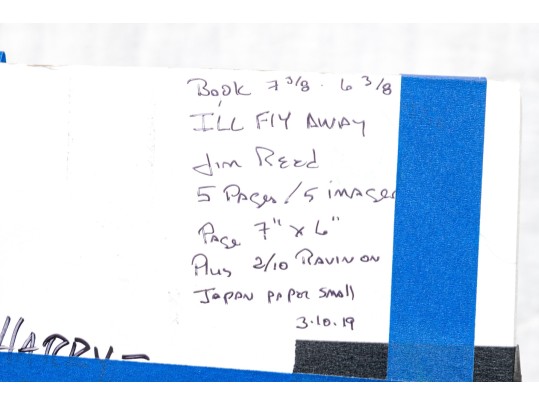 Book 7 3/8 · 6 3/8
I'LL FIY AWAY
Jim Reed
5 Pages / 5 images
Page 7" x 6"
Plus 2/10 RAVIN ON
JAPAN PAPER SMALL
3.10.19
HARRY